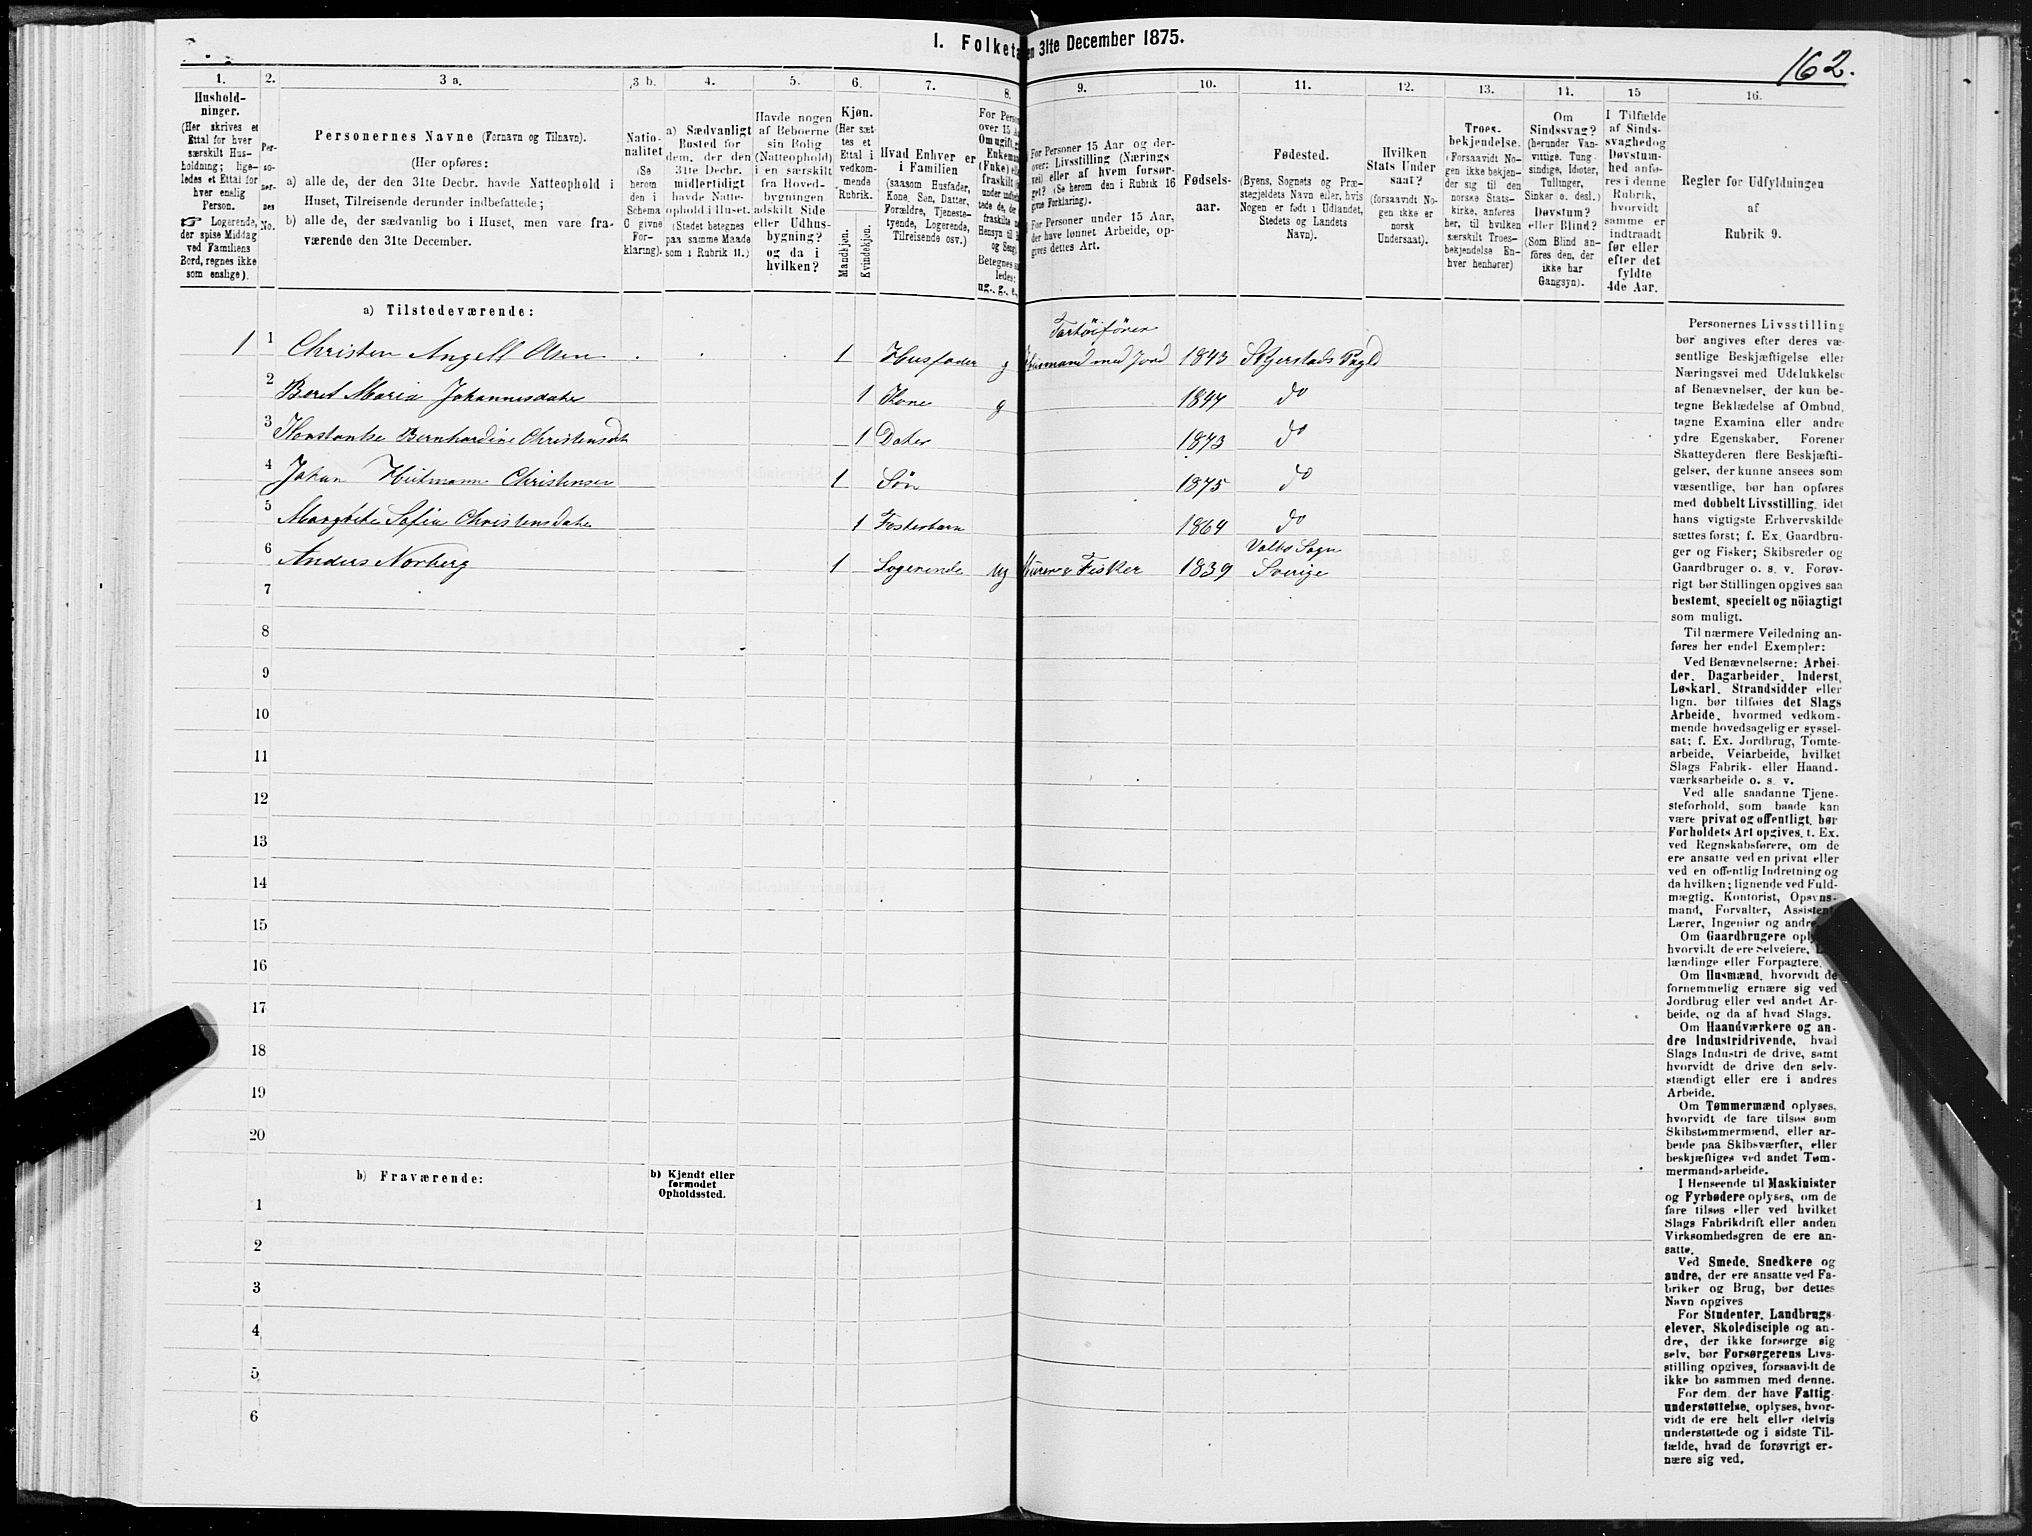 I. Folketa en 31te December 1875.
162.
1.
2.
3 a.
3 b.
4.
5.
6.
7.
8.
9.
10.
11.
12.
13.
14.
15
16.
Hushold-
ninger.
(Her skrives et
Ettal for hver
særskilt Hus-
holdning; lige-
ledes et Ettal for
hver enslig
Person.
☞ Logerende,
der spise Middag
ved Familiens
Bord, regnes ikke
som enslige).
Per-
so-
ner-
nes
No.
Personernes Navne (Fornavn og Tilnavn).
(Her opføres:
a) alle de, der den 31te Decbr. havde Natteophold i
Huset, Tilreisende derunder indbefattede;
b) alle de, der sædvanlig bo i Huset, men vare fra-
værende den 31te December.
Natio-
nalitet
(Se
herom
den i
Schema
C givne
For-
klaring).
a) Sædvanligt
Bosted for
dem, der den
31te Decbr.
midlertidigt
havde Natte-
ophold i Huset.
(Stedet betegnes
paa samme Maade
som i Rubrik 11.)
Havde nogen
af Beboerne
sin Bolig
(Natteophold)
i en særskilt
fra Hoved-
bygningen
adskilt Side
eller Udhus-
bygning?
og da i
hvilken?
Kjøn.
(Her sæt-
tes et
Ettal i
vedkom-
mende
Rubrik.
Mandkjøn.
Kvindekjøn.
Hvad Enhver er
i Familien
(saasom Husfader,
Kone, Søn, Datter,
Forældre, Tjeneste-
tyende, Logerende,
Tilreisende osv.)
For Perso
over 15 Aa
Om ugift, g
Enkeman
(Fnke) elle
fraskilt
ledes:
ug., g., e.,
For Personer 15 Aar og der-
over: Livsstilling (Nærings
vei) eller af hvem forsør-
get? (Se herom den i Rubrik 16
givne Forklaring).
For Personer under 15 Aar,
der have lønnet Arbeide, op-
gives dettes Art.
Fødsels-
aar.
Fødested.
(Byens, Sognets og Præ-
stegjeldets Navn eller, hvis
Nogen er født i Udlandet,
Stedets og Landets
Navn).
Hvilken
Stats Under
saat?
(forsaavidt No-
gen ikke er
norsk
Undersaat).
Troes-
bekjendelse.
(Forsaavidt No-
gen ikke bekjen-
der sig til den
norske Stats-
kirke, anføres
her, til hvilken
særskilt Troes-
bekjendelse En-
hver henhører)
Om
Sindssvag?
(herunder Van-
vittige, Tung
sindige, Idioter,
Tullinger,
Sinker o. desl.)
Døvstum?
eller Blind?
(Som Blind an-
føres den, der
ikke har
Gangsyn).
I Tilfælde
af Sinds-
svaghed og
Døvstum-
hed anfø-
res i denne
Rubrik,
hvorvidt
samme er
indtraadt
før eller
efter det
fyldte
4de Aar.
Regler for Udfyldningen
af
Rubrik 9.
a) Tilstedeværende:
Fartöiförer
1 1 Christen Angell Olsen 1 Husfader g Husmand med Jord 1843 Skjerstads Pgld
2 Beret Maria Johannesdater 1 Kone g 1847 do
3 Konstantse Bernhardine Christensdt 1 Dater 1873 do
4 Johan Hitmann Christensen 1 Søn 1875 do
5 Margrete Sofia Christensdater 1 Fosterbarn 1864 do
Valbo Sogn
6 Anders Norberg 1 Logerende ug Murer &amp; Fisker 1839 Sverige
7
8
9
10
11
12
13
14
15
16
17
18
19
20
b) Fraværende:
b) Kjendt eller
formodet
Opholdssted.
1
2
3
4
5
6
Personernes Livsstilling
bør angives efter deres væ-
sentlige Beskjæftigelse eller
Næringsvei med Udelukkelse
af Benævnelser, der kun be-
tegne Beklædelse af Ombud,
tagne Examina eller andre
ydre Egenskaber. Forener
Skatteyderen flere Beskjæfti-
gelser, der kunne ansees som
væsentlige, bør han opføres
med dobbelt Livsstilling, idet
hans vigtigste Erhvervskilde
sættes først; f. Ex. Gaardbru-
ger og Fisker; Skibsreder og
Gaardbruger o. s. v. Forøv-
rigt bør Stillingen opgives saa
bestemt, specielt og nöiagtigt
som muligt.
Til nærmere Veiledning an-
føres her endel Exempler:
Ved Benævnelserne: Arbei-
der, Dagarbeider, Inderst,
Løskarl, Strandsidder eller
lign. bør tilføies det Slags
Arbeide, hvormed vedkom-
mende hovedsagelig er syssel-
sat; f. Ex. Jordbrug, Tomte-
arbeide, Veiarbeide, hvilket
Slags Fabrik- eller Haand-
værksarbeide o. s. v.
Ved alle saadanne Tjene-
steforhold, som baade kan
være privat og offentligt, bør
Forholdets Art opgives, t. Ex.
ved Regnskabsførere, om de
ere ansatte ved en privat eller
ved en offentlig Indretning og
da hvilken; lignende ved Fuld-
mægtig, Kontorist, Opsyns-
mand, Forvalter, Assistent
Lærer, Ingeniør og andre
Om Gaardbrugere oply
hvorvidt de ere Selveiere,
lændinge eller Forpagtere.
Om Husmænd, hvorvidt de
fornemmelig ernære sig ved
Jordbrug eller ved andet Ar-
beide, og da af hvad Slags.
Om Haandværkere og an-
dre Industridrivende, hvad
Slags Industri de drive, samt
hvorvidt de drive den selv-
stændigt eller ere i andres
Arbeide.
Om Tømmermænd oplyses,
hvorvidt de fare tilsøs som
Skibstømmermænd, eller ar-
beide paa Skibsværfter, eller
beskjæftiges ved andet Tøm-
mermandsarbeide.
I Henseende til Maskinister
og Fyrbødere oplyses, om de
fare tilsøs eller ved hvilket
Slags Fabrikdrift eller anden
Virksomhedsgren de ere an-
satte.
Ved Smede, Snedkere og
andre, der ere ansatte ved Fa-
briker og Brug, bør dettes
Navn opgives
For Studenter, Landbrugs-
elever, Skoledisciple og an-
dre, der ikke forsørge sig
selv, bør Forsørgerens Livs-
stilling opgives, forsaavidt de
ikke bo sammen med denne.
For dem, der have Fattig-
understøttelse, oplyses, hvor-
vidt de ere helt eller delvis
understøttede og i sidste Til-
fælde, hvad de forøvrigt er-
nære sig ved.